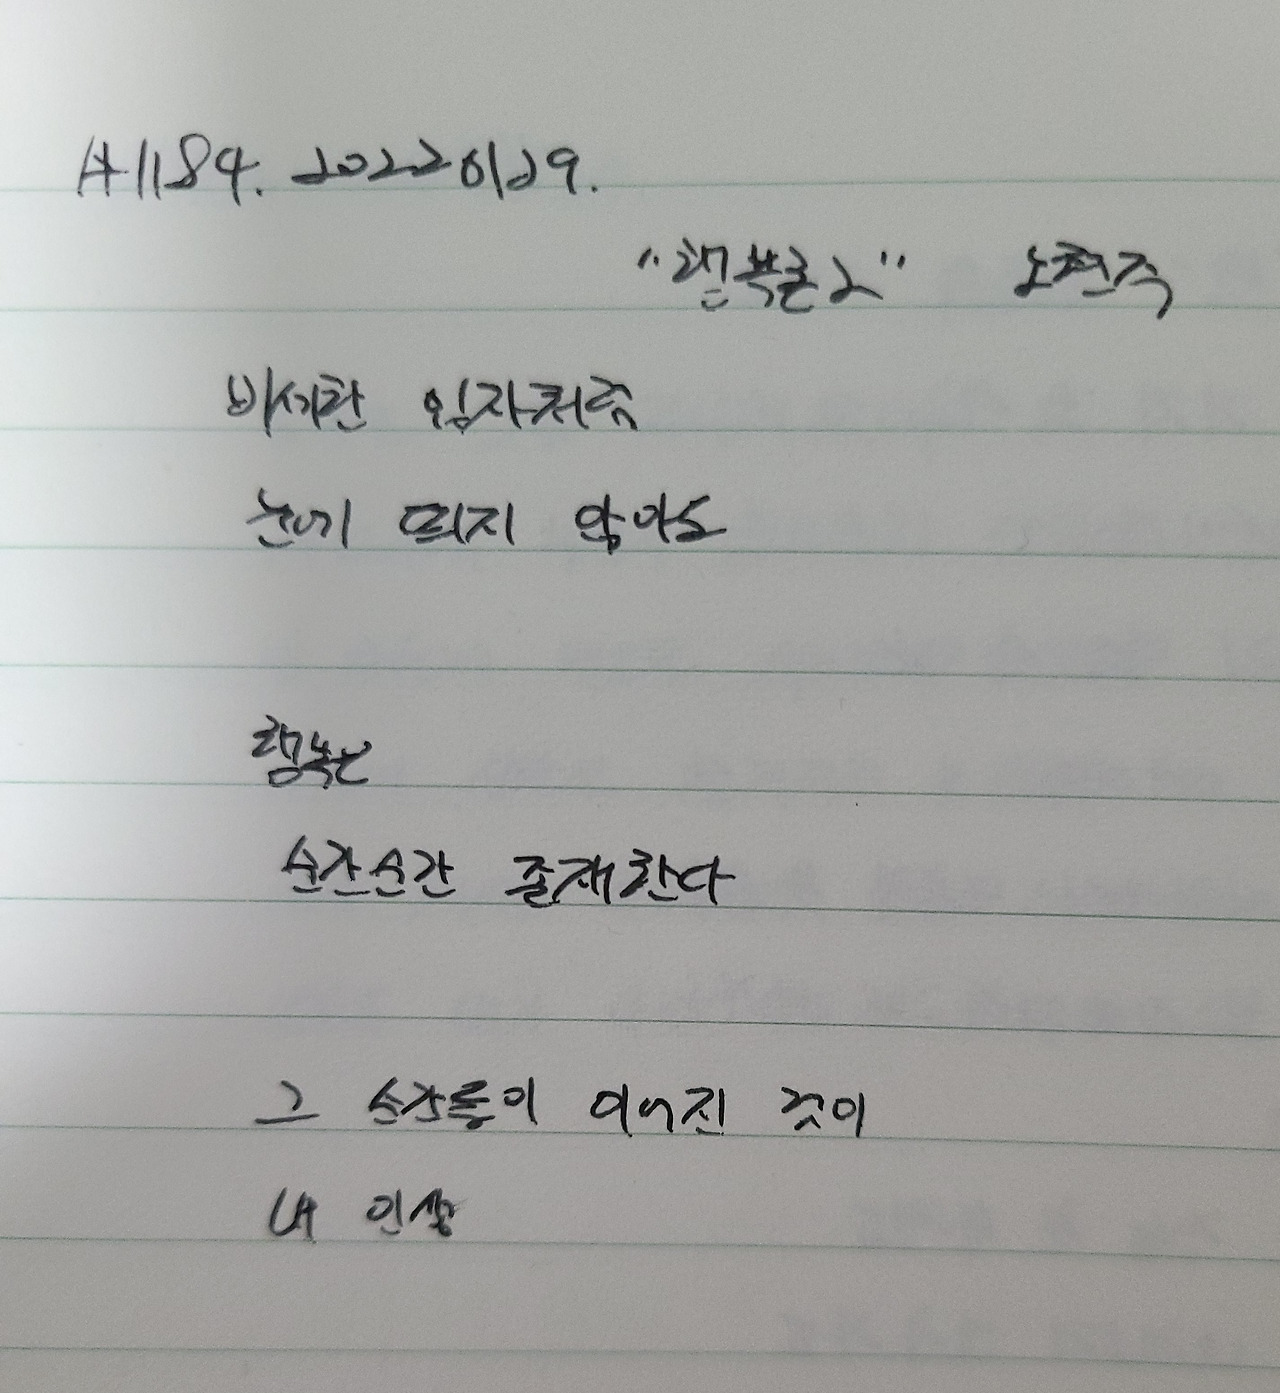 A1184. 20220129.
"행복론2" 노현주
미세한 입자처럼
눈에 띄지 않아도
행복은
순간순간 존재한다
그 순간들이 이어진 것이
내 인생